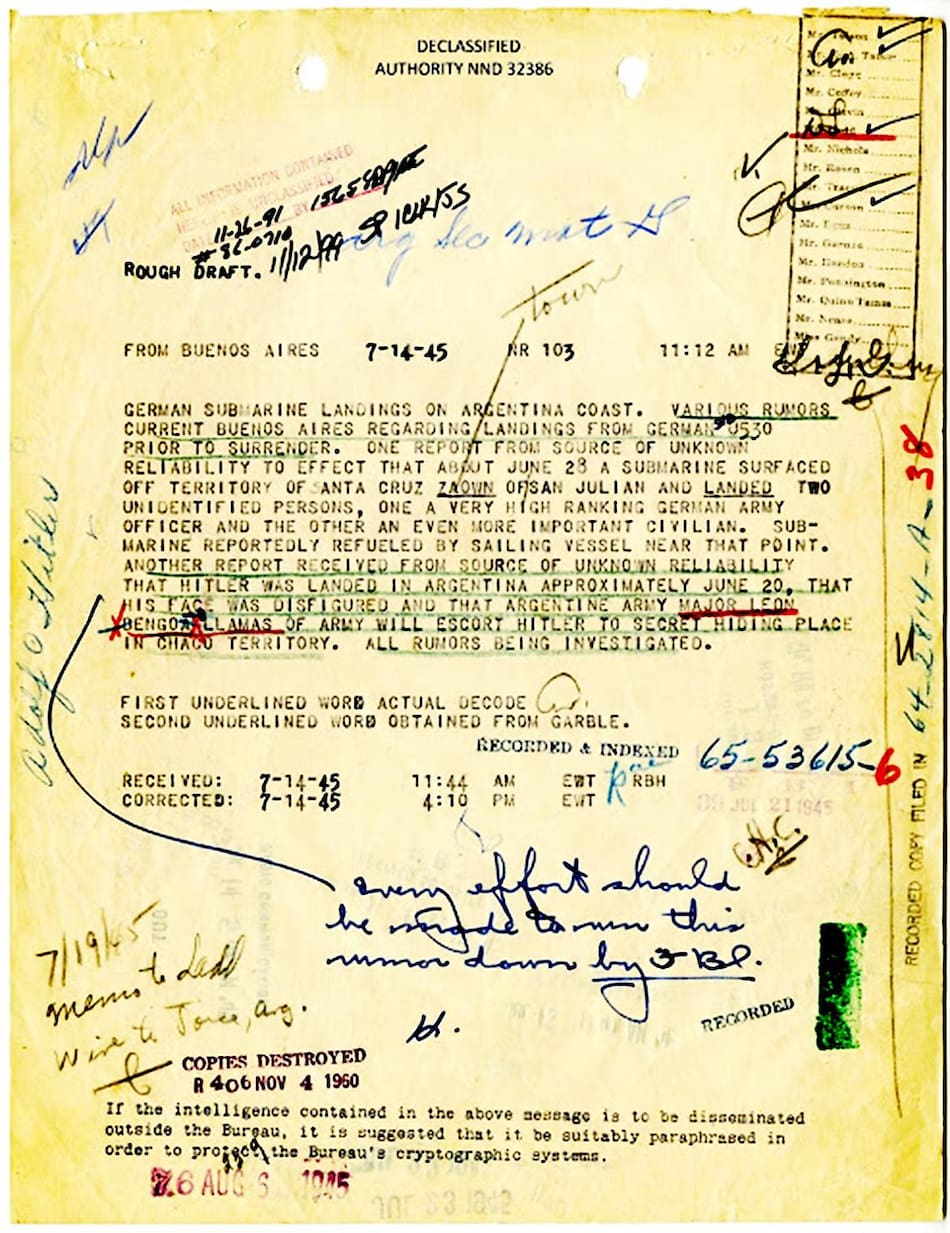 DECLASSIFIED
AUTHORITY NND 32386
Mr. Clegg
Mr. Coffey
Mr. Nichols
Mr. Rosen
Mr. Carson
Mr. Egan
Mr. Hendon
Mr. Pennington
Mr. Quinn Tamm
Mr. Nease
Miss Gandy
ALL INFORMATION CONTAINED
11-26-91
#86-0710
11/12/99
ROUGH DRAFT.
town
FROM BUENOS AIRES 7-14-45 NR 103 11:12 AM EWT
GERMAN SUBMARINE LANDINGS ON ARGENTINA COAST. VARIOUS RUMORS
CURRENT BUENOS AIRES REGARDING LANDINGS FROM GERMAN U530
PRIOR TO SURRENDER. ONE REPORT FROM SOURCE OF UNKNOWN
RELIABILITY TO EFFECT THAT ABOUT JUNE 28 A SUBMARINE SURFACED
OFF TERRITORY OF SANTA CRUZ ZAOWN OF SAN JULIAN AND LANDED TWO
UNIDENTIFIED PERSONS, ONE A VERY HIGH RANKING GERMAN ARMY
OFFICER AND THE OTHER AN EVEN MORE IMPORTANT CIVILIAN. SUB-
MARINE REPORTEDLY REFUELED BY SAILING VESSEL NEAR THAT POINT.
ANOTHER REPORT RECEIVED FROM SOURCE OF UNKNOWN RELIABILITY
THAT HITLER WAS LANDED IN ARGENTINA APPROXIMATELY JUNE 20, THAT
HIS FACE WAS DISFIGURED AND THAT ARGENTINE ARMY MAJOR LEON
BENGOA LLAMAS OF ARMY WILL ESCORT HITLER TO SECRET HIDING PLACE
IN CHACO TERRITORY. ALL RUMORS BEING INVESTIGATED.
FIRST UNDERLINED WORD ACTUAL DECODE
SECOND UNDERLINED WORD OBTAINED FROM GARBLE.
RECORDED & INDEXED
65-53615-6
RECEIVED: 7-14-45 11:44 AM EWT RBH
CORRECTED: 7-14-45 4:10 PM EWT
JUL 21 1945
Adolf Hitler
RECORDED COPY FILED IN 64-2814-A-38
every effort should
be made to run this
rumor down by FBI.
H.
7/19/45
memo to Ladd
Wire to Joice, Arg.
RECORDED
COPIES DESTROYED
R 406 NOV 4 1960
If the intelligence contained in the above message is to be disseminated
outside the Bureau, it is suggested that it be suitably paraphrased in
order to protect the Bureau's cryptographic systems.
76 AUG 6 1945
JUL 23 1945